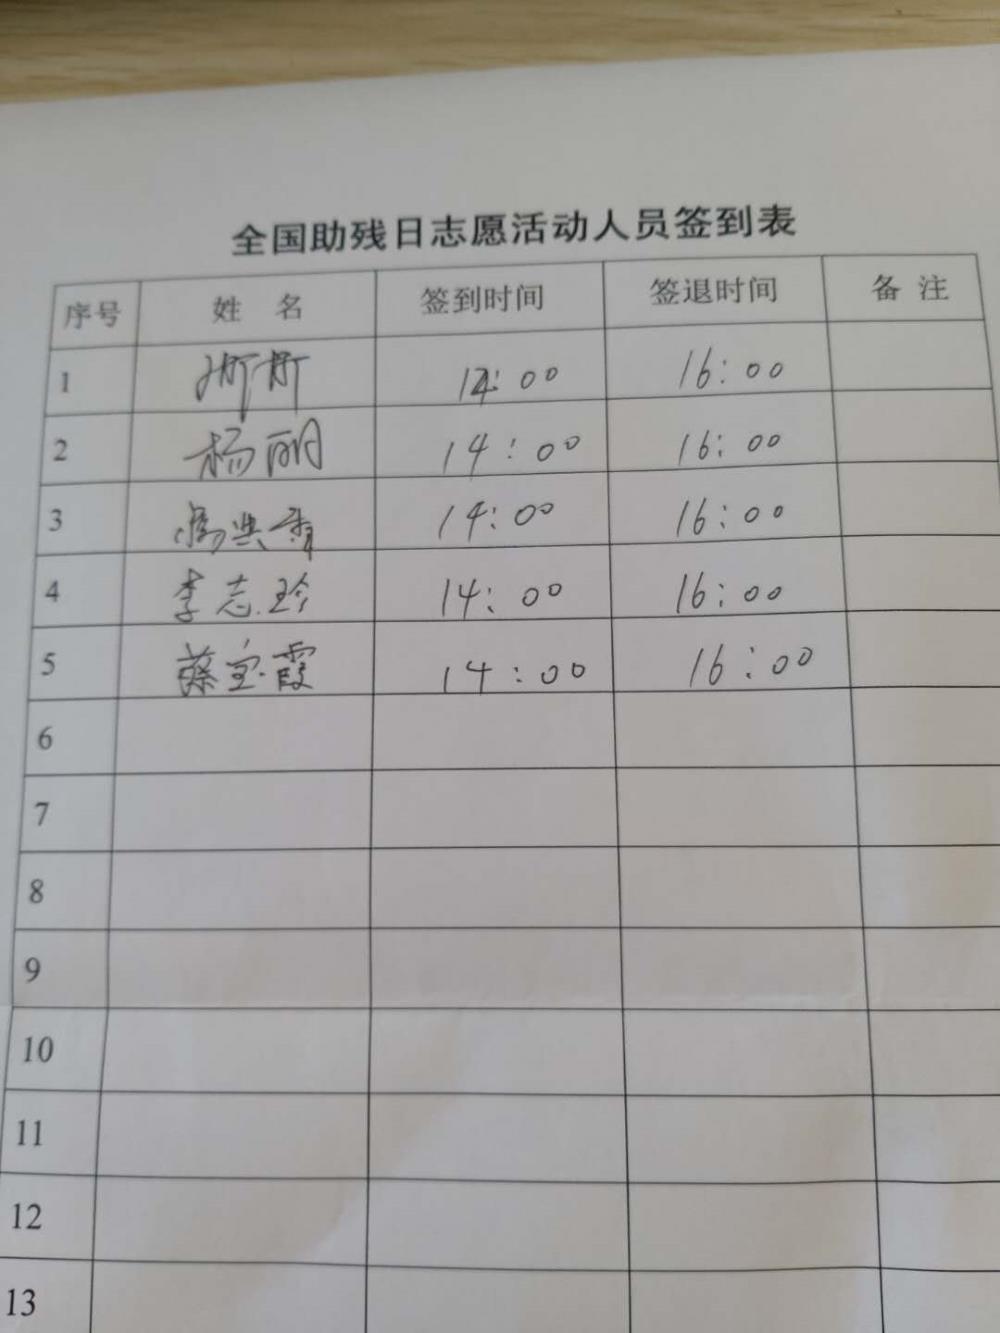 全国助残日志愿活动人员签到表
序号 姓 名 签到时间 签退时间 备 注
1 14:00 16:00
2 杨丽 14:00 16:00
3 14:00 16:00
4 李志玲 14:00 16:00
5 蔡宝霞 14:00 16:00
6
7
8
9
10
11
12
13